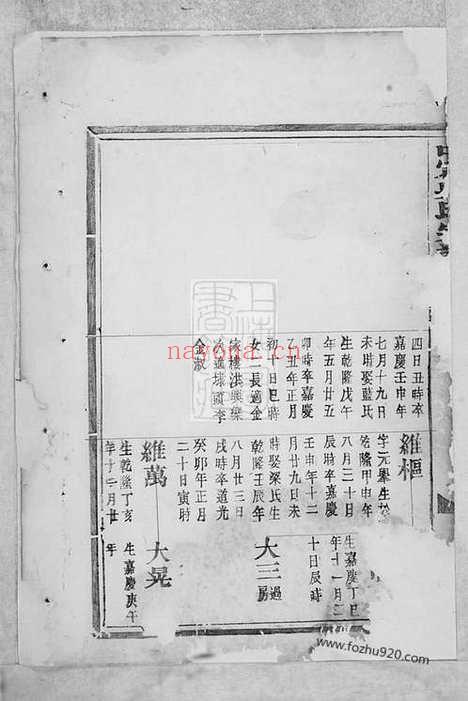 四日丑時卒
嘉慶壬申年
七月十九日
未時娶藍氏
生乾隆戊午
年五月廿五
卯時卒嘉慶
乙丑年正月
初十日巳時
女二長適金
樓洪興榮
次適球頭李
金淑
維樞
字元舉生於
乾隆甲申年
八月三十日
辰時卒嘉慶
壬申年十二
月廿九日未
時娶梁氏生
乾隆壬辰年
八月廿三日
戌時卒道光
癸卯年正月
二十日寅時
維萬
生乾隆丁亥
年十二月廿
生嘉慶丁巳
年十一月二
十日辰時
大三過房
大晃
生嘉慶庚午
年
nayona.cn
www.fozhu920.com